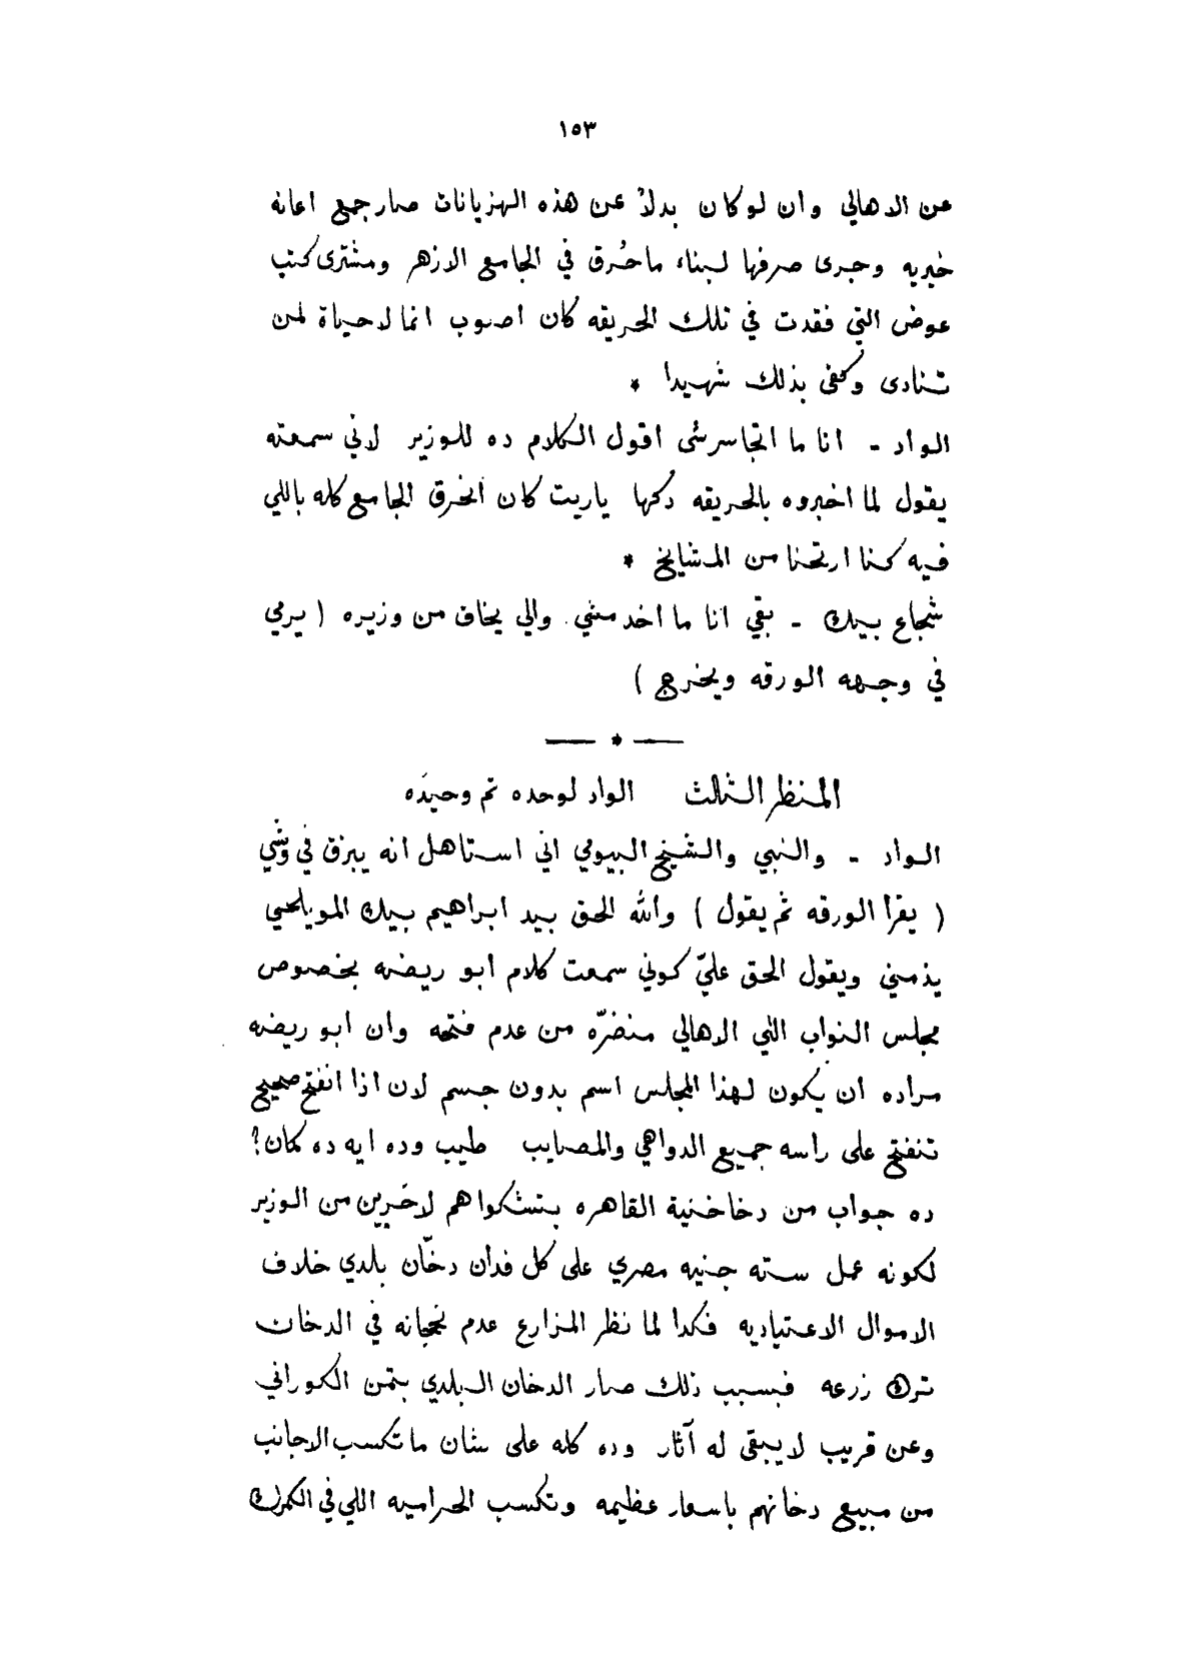 ١٥٣
عن الاهالي وان لوكان بدلاً عن هذه الهزيانات صار جمع اعانه
خيريه وجرى صرفها لبناء ماحُرق في الجامع الازهر ومشترى كتب
عوض التي فقدت في تلك الحريقه كان اصوب انما لاحياة لمن
تنادى وكفى بذلك شهيدا *
الواد - انا ما اتجاسرشى اقول الكلام ده للوزير لاني سمعته
يقول لما اخبروه بالحريقه دكها ياريت كان انحرق الجامع كله باللي
فيه كنا ارتحنا من المشايخ *
شجاع بيك - بقي انا ما اخدمشي والي يخاف من وزيره ( يرمي
في وجهه الورقه ويخرج )
— * —
المنظر الثالث الواد لوحده ثم وحيده
الواد - والنبي والشيخ البيومي اني استاهل انه يبزق في وشي
( يقرأ الورقه ثم يقول ) والله الحق بيد ابراهيم بيك المويلحي
يذمني ويقول الحق عليّ كوني سمعت كلام ابو ريضه بخصوص
مجلس النواب اللي الاهالي منضرّه من عدم فتحه وان ابو ريضه
مراده ان يكون لهذا المجلس اسم بدون جسم لان اذا انفتح صحيح
تنفتح على راسه جميع الدواهي والمصايب طيب وده ايه ده كمان؟
ده جواب من دخاخنية القاهره بتشكواهم لاخرين من الوزير
لكونه عمل سته جنيه مصري على كل فدان دخّان بلدي خلاف
الاموال الاعتياديه فكدا لما نظر المزارع عدم نجحانه في الدخان
ترك زرعه فبسبب ذلك صار الدخان البلدي بتمن الكوراني
وعن قريب لايبقى له آثار وده كله على شان ماتكسب الاجانب
من مبيع دخانهم باسعار عظيمه وتكسب الحراميه اللي في الكمرك